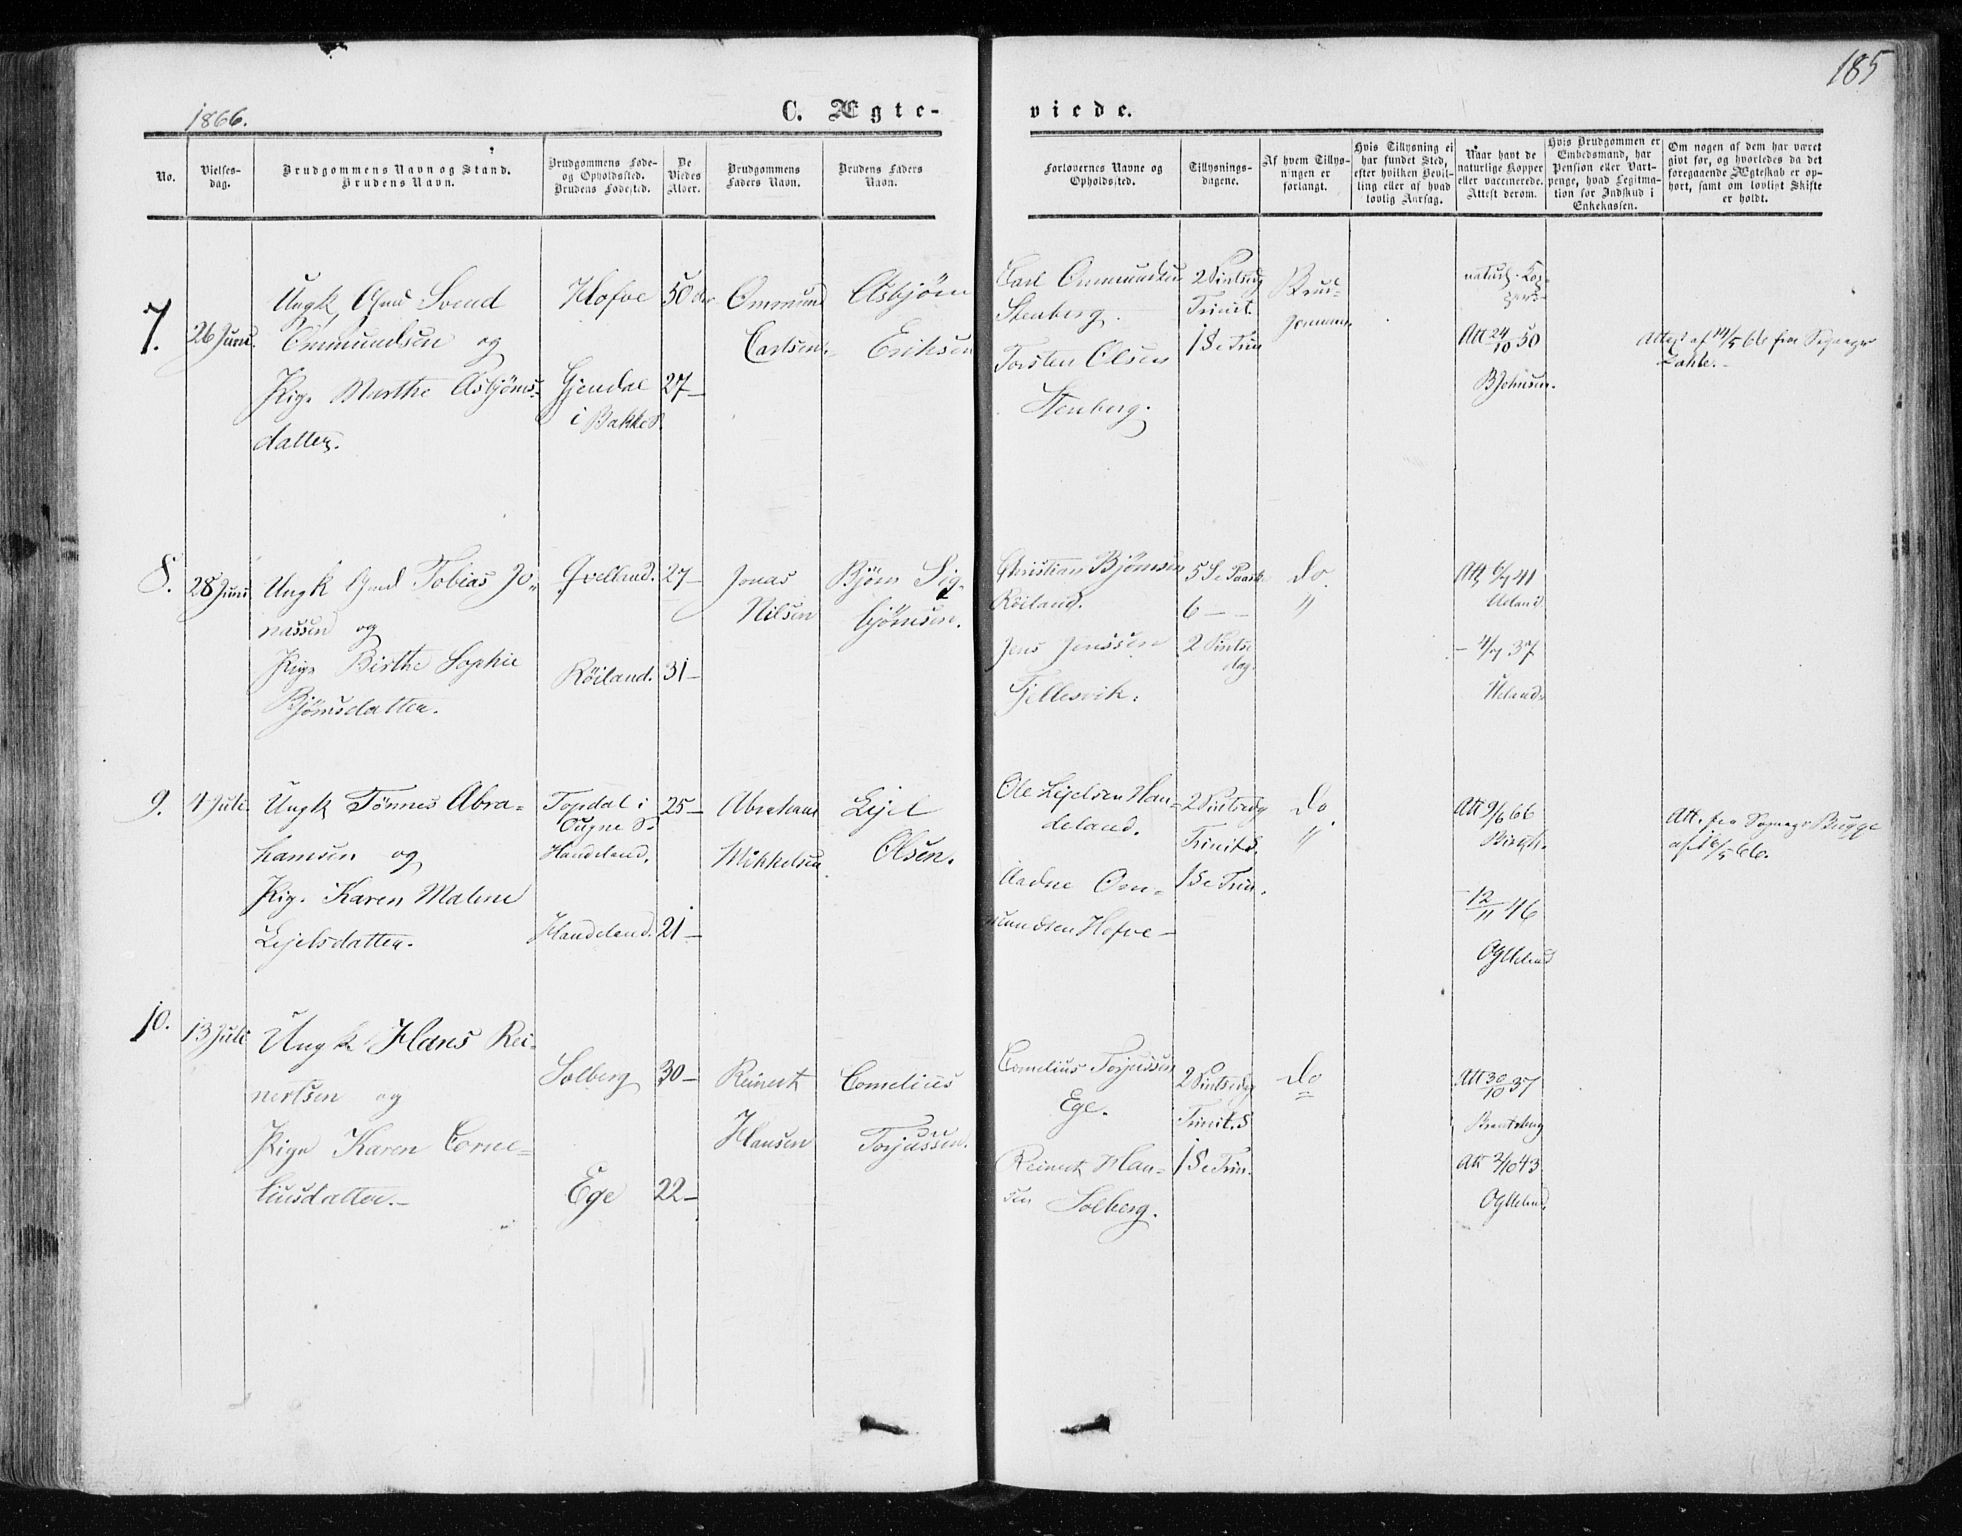 185
1866.
C. Ægte-
viede.
No.
Vielses-
dag.
Brudgommens Navn og Stand.
Brudens Navn.
Brudgommens Føde-
og Opholdssted.
Brudens Fødested.
De
Viedes
Alder.
Brudgommens
Faders Navn.
Brudens Faders
Navn.
Forlovernes Navne og
Opholdssted.
Tillysnings-
dagene.
Af hvem Tillys-
ningen er
forlangt.
Hvis Tillysning ei
har fundet Sted,
efter hvilken Bevil-
ling eller af hvad
lovlig Aarsag.
Naar havt de
naturlige Kopper
eller vaccinerede.
Attest derom.
Hvis Brudgommen er
Embedsmand, har
Pension eller Vart-
penge, hvad Legitima-
tion for Indskud i
Enkekassen.
Om nogen af dem har været
gift før, og hvorledes da det
foregaaende Ægteskab er op-
hørt, samt om lovligt Skifte
er holdt.
7.
26 Juni.
Ungk. Gmd Svend
Ommundsen og
Pige Marthe Asbjørns-
datter.
Hofve
Gjendal
i Bakke S.
50
27
Ommund
Carlsen.
Asbjørn
Eriksen
Carl Ommundsen
Stenberg.
Torsten Olsen
Stenberg.
2 Pintsedg
Trinit.
1 S e Trin
Brud-
gommen
naturl. Kop-
per
Att 24/10 50
BJohnsen.
Attest af 14/5 66 fra Sognepr
8.
28 Juni
Ungk Gmd Tobias Jo-
nassen og
Pige Birthe Sophie
Bjørnsdatter.
Qvellend.
Røiland.
27
31
Jonas
Nilsen
Bjørn Sig-
bjørnsen.
Christian Bjørnsen
Røiland.
Jens Jenssen
Fjellesvik.
5 S e Paaske
6 – –
2 Pintse
dag.
Do.
"
Att 6/7 41
Ueland
– 4/7 37
Ueland.
9.
4 Juli.
Ungk Tønnes Abra-
hamsen og
Pige Karen Malene
Ejelsdatter.
Topdal i
Øugne S.
Handeland.
Handeland.
25
21
Abraham
Mikkelsen
Ejel
Olsen.
Ole Ejelsen Han-
deland.
Aadne Om-
mundsen Hofve
2 Pintsedg
Trinit S.
1 S e Trin.
Do.
"
Att 9/6 66
– 12/11 46
OgUeland
Att. fra Sognepr Bugge
af 16/5 66.
10.
13 Juli
Ungk. Hans Rei-
nertsen og
Pige Karen Corne-
liusdatter.
Solberg
Ege
30
22
Reinert
Hansen
Cornelius
Torjussen.
Cornelius Torjussen
Ege.
Reinert Han-
sen Solberg.
2 Pintsedg
Trinit. S
1 S e Trin.
Do
"
Att 30/10 37
Att 2/10 43
OgUeland.